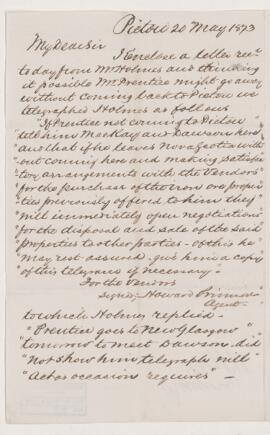 Pictou 20 May 1873
My Dear Sir
I Enclose a letter rec'd
to day from Mr Holmes and thinking
it possible Mr Prentice might go away
without coming back to Pictou we
telegraphed Holmes as follows
"If Prentice not coming to Pictou
"tell him MacKay and Dawson here
"and that if he leaves Nova Scotia with
"out coming here and making satisfac
"tory arrangements with the Vendors
"for the purchase of the Iron ore proper
"ties previously offered to him they
"will immediately open negotiations
"for the disposal and sale of the said
"properties to other parties - of this he
"may rest assured. give him a copy
"of this telegram if necessary"
For the Vendors
Signed Howard Primrose
Agent
to which Holmes replied
"Prentice goes to New Glasgow
"tomorrow to meet Dawson. did
"not show him telegraph will
"act as occasion requires" -